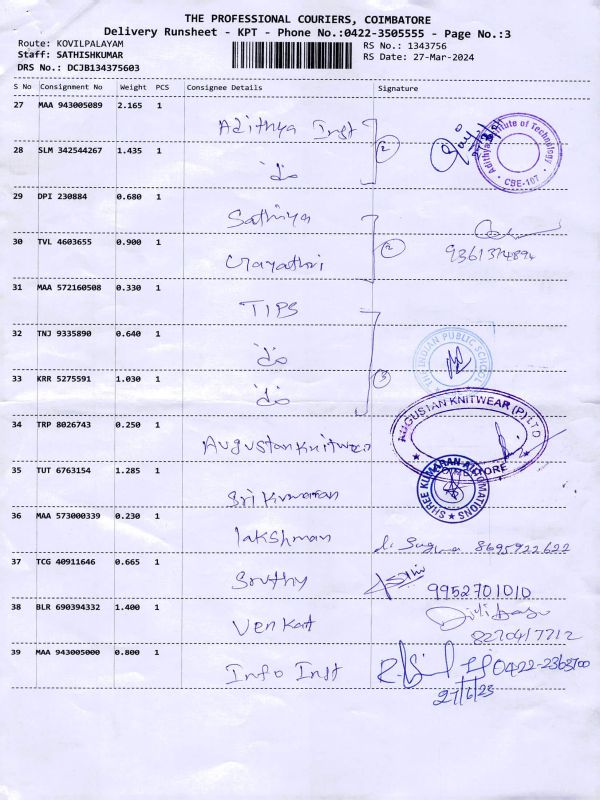 THE PROFESSIONAL COURIERS, COIMBATORE
Delivery Runsheet - KPT - Phone No.:0422-3505555 - Page No.:3
Route: KOVILPALAYAM
RS No.: 1343756
Staff: SATHISHKUMAR
RS Date: 27-Mar-2024
DRS No.: DCJB134375603
S No Consignment No Weight PCS Consignee Details Signature
27 MAA 943005089 2.165 1 Adithya Inst
Adithya Institute of Technology
CBE-107
28 SLM 342544267 1.435 1 do
2
29 DPI 230884 0.680 1 Sathiya
30 TVL 4603655 0.900 1 Gayathri 2
31 MAA 572160508 0.330 1 TIPS
32 TNJ 9335890 0.640 1 do
THE INDIAN PUBLIC SCHOOL
33 KRR 5275591 1.030 1 do 3
34 TRP 8026743 0.250 1 Augustan Knitwear
AUGUSTAN KNITWEAR (P) LTD
COIMBATORE
35 TUT 6763154 1.285 1 Sri Kumaran
SHREE KUMARAN AUTOMATIONS
36 MAA 573000339 0.230 1 lakshman 8695922622
37 TCG 40911646 0.665 1 Sruthy 9952701010
38 BLR 690394332 1.400 1 Venkat
39 MAA 943005000 0.800 1 Info Inst 0422-2363700